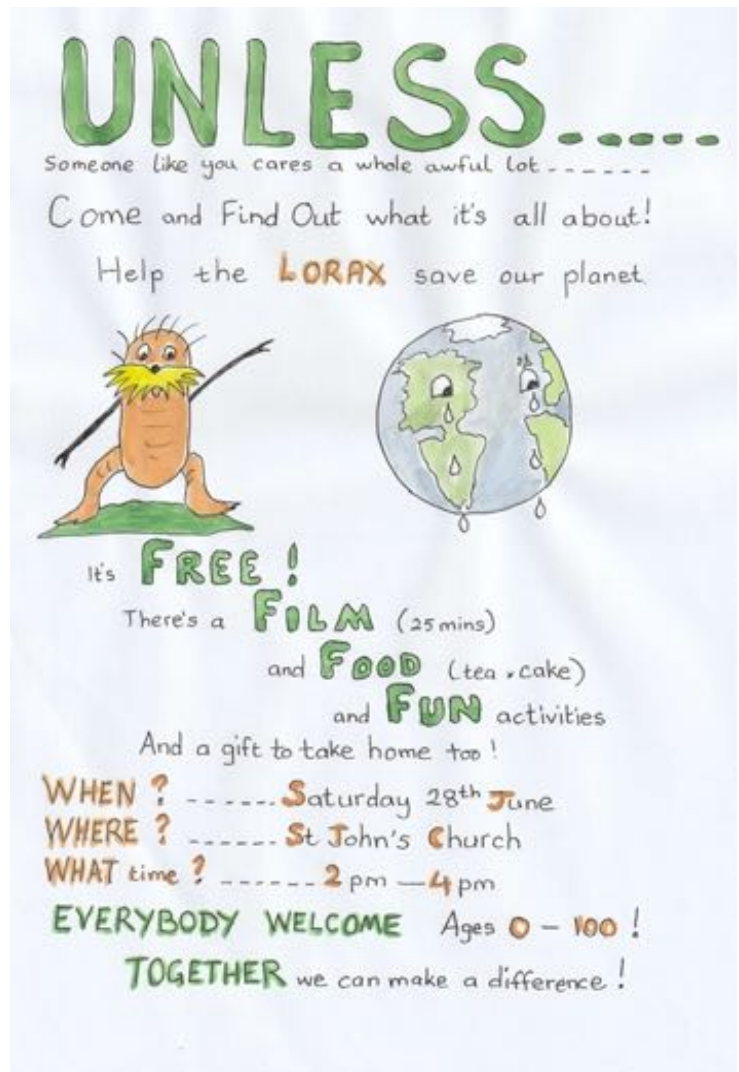 UNLESS.....
Someone like you cares a whole awful lot ------
Come and Find Out what it's all about!
Help the LORAX save our planet
It's FREE!
There's a FILM (25 mins)
and FOOD (tea & cake)
and FUN activities
And a gift to take home too!
WHEN? ------- Saturday 28th June
WHERE? ------ St John's Church
WHAT time? ------- 2pm — 4pm
EVERYBODY WELCOME Ages 0 - 100!
TOGETHER we can make a difference!